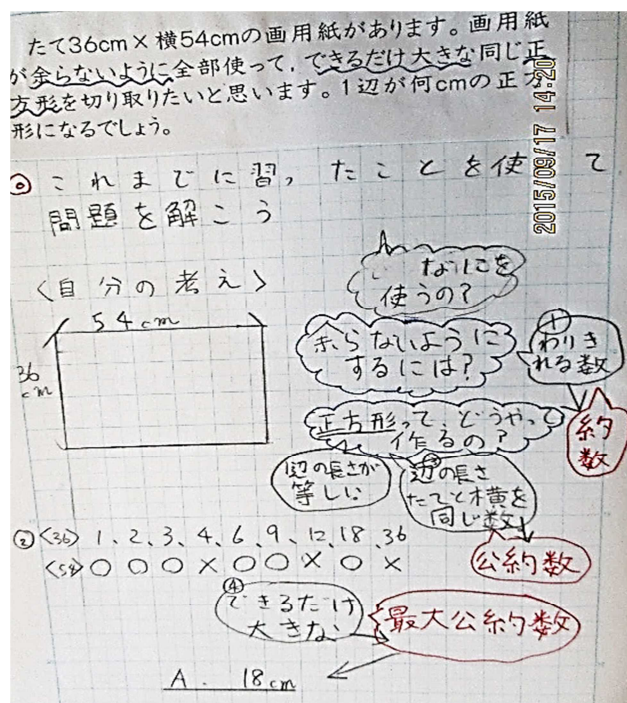 たて36cm×横54cmの画用紙があります。画用紙
が余らないように全部使って，できるだけ大きな同じ正
方形を切り取りたいと思います。1辺が何cmの正方
形になるでしょう。
2015/09/17 14:20
◎これまでに習ったことを使って
問題を解こう
〈自分の考え〉
なにを
使うの？
54cm
36
cm
余らないように
するには？
①
わりき
れる数
正方形って、どうやって
作るの？
約
数
辺の長さが
等しい
辺の長さ
たてと横を
同じ数
② 〈36〉 1、2、3、4、6、9、12、18、36
〈54〉 ○ ○ ○ × ○ ○ × ○ ×
公約数
④
できるだけ
大きな
最大公約数
A. 18cm